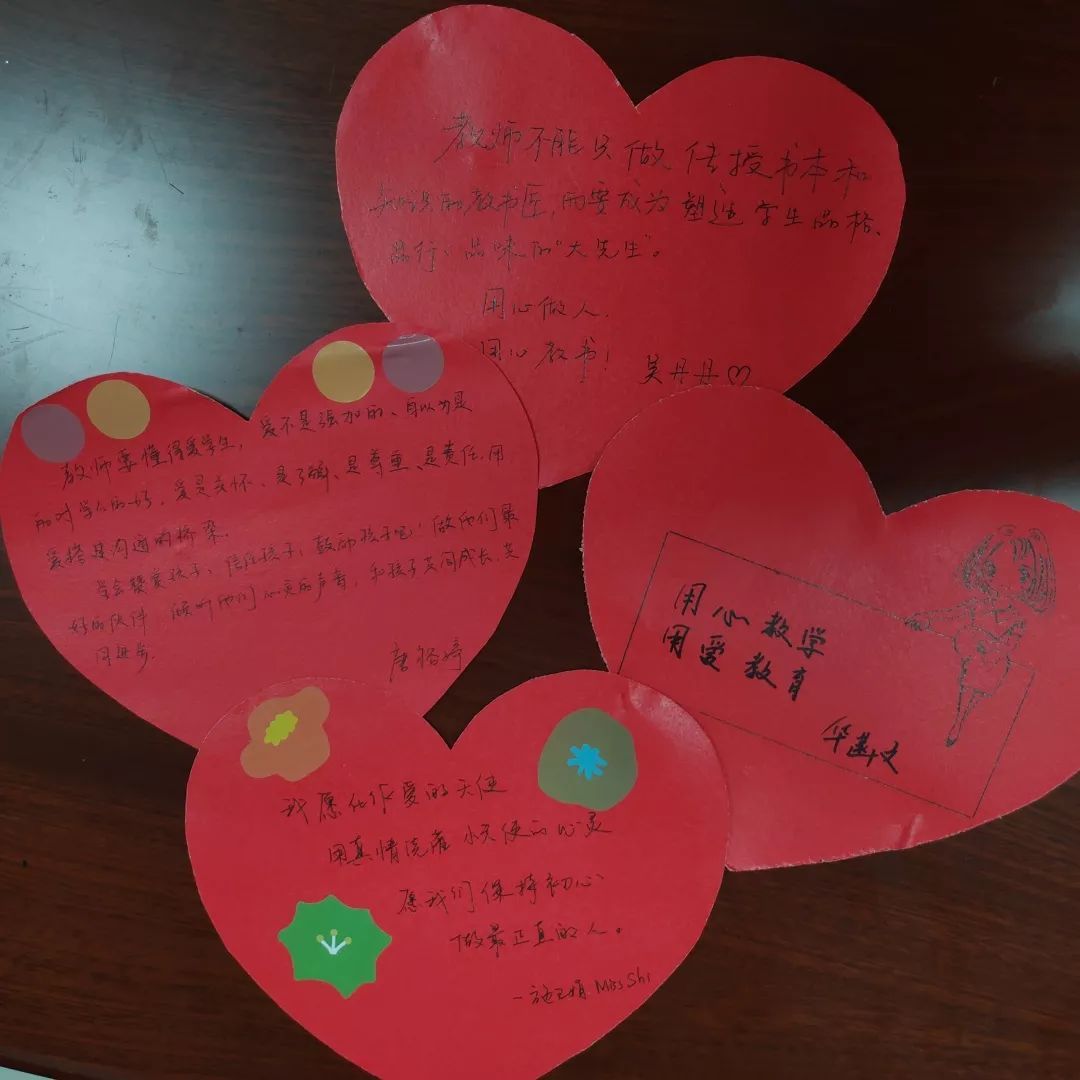 教师不能只做传授书本和
知识的教书匠,而要成为塑造学生品格、
品行、品味的“大先生”。
用心做人.
用心教书!
吴丹丹♡
教师要懂得爱学生,爱不是强加的、自以为是
的对学生的好,爱是关怀、是了解、是尊重、是责任.用
爱搭建沟通的桥梁.
学会赞赏孩子、信任孩子、鼓励孩子吧!做他们最
好的伙伴 倾听他们心灵的声音,和孩子共同成长、共
同进步.
唐
婷
用心教学
用爱教育
华
文
我愿化作爱的天使
用真情浇灌小天使的心灵
愿我们保持初心
做最正直的人。
施
娟 Miss Shi